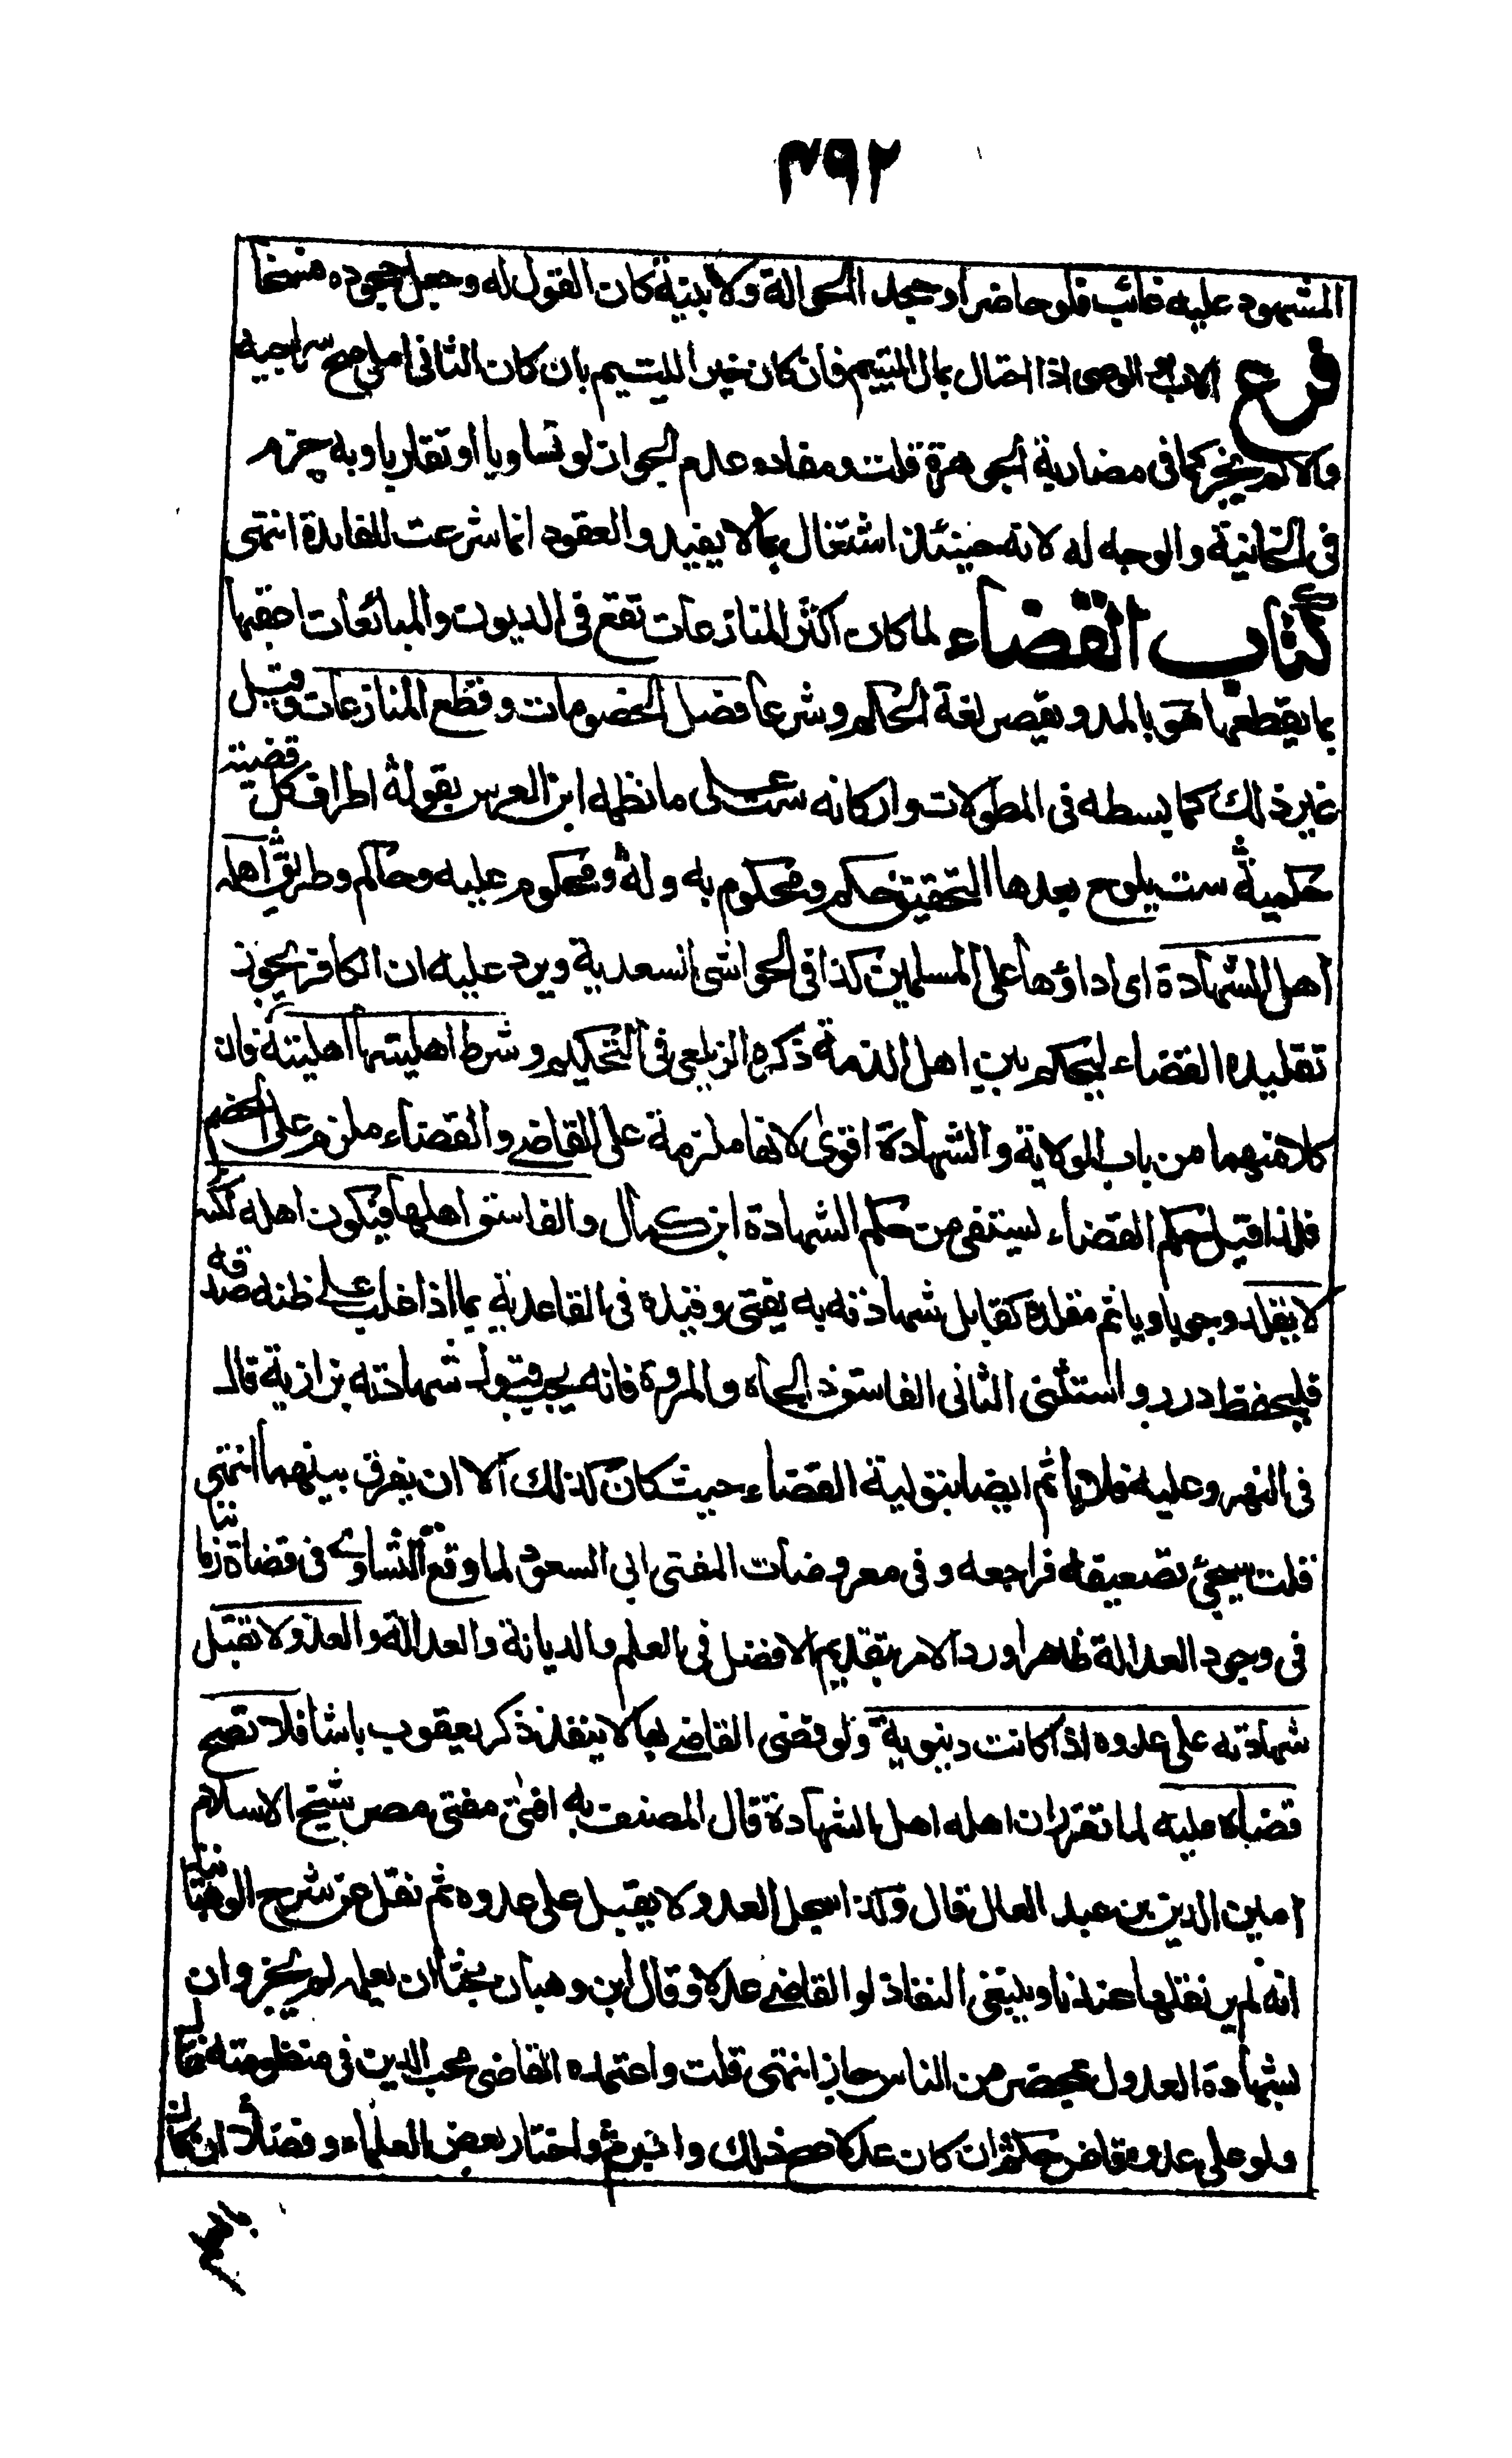 ٣٩٢
المشهود عليه غائب فلو حاضرا وجحد الحوالة ولا بينة كان القول له وجعل جحوده فسخا
فرع الاب والوصى اذا احتال بمال اليتيم فان كان خيرا لليتيم بان كان الثانى املى صح سراجيه
والا لم يجز كما فى مضاربة الجوهرة قلت ومفاده عدم الجواز لو تساويا او تقاربا وبه جزم
فى الخانية والوجه له لانه حينئذ اشتغال بما لا يفيد والعقود انما شرعت للفائدة انتهى
كتاب القضاء لما كان اكثر المنازعات تقع فى الديون والمبائعات اعقبها
بما يقطعها هو بالمد ويقصر لغة الحكم وشرعا فصل الخصومات وقطع المنازعات وقيل
غير ذلك كما بسطه فى المطولات واركانه ستة على ما نظمه ابن الغرس بقوله اطراف كل قضية
حكمية ست يلوح بعدها التحقيق حكم ومحكوم به وله ومحكوم عليه وحاكم وطريق اهله
اهل الشهادة اى اداؤها على المسلمين كذا فى الحواشى السعدية ويرد عليه ان الكافر يجوز
تقليده القضاء ليحكم بين اهل الذمة ذكره الزيلعى فى التحكيم وشرط اهليتها اهليته فان
كلا منهما من باب الولاية والشهادة اقوى لانها ملزمة على القاضى والقضاء ملزم على الخصم
فلذا قيل حكم القضاء يستقى من حكم الشهادة ابن كمال والفاسق اهلها فيكون اهله لكنه
لا يقلد وجوبا وياثم مقلده كقابل شهادته به يفتى وقيده فى القاعدية بما اذا غلب على ظنه صدقه
فليحفظ درر واستثنى الثانى الفاسق ذا الجاه والمروة فانه يجب قبول شهادته بزازية قال
فى النهر وعليه فلا ياثم ايضا بتولية القضاء حيث كان كذلك الا ان يفرق بينهما انتهى
قلت سيجئ تضعيفه فراجعه وفى معروضات المفتى ابى السعود لما وقع التساوى فى قضاة زماننا
فى وجود العدالة ظاهرا ورد الامر بتقديم الافضل فى العلم والديانة والعدالة والعدو لا تقبل
شهادته على عدوه اذا كانت دنيوية ولو قضى القاضى بها لا ينفذ ذكر يعقوب باشا فلا تصح
قضاه عليه لما تقرر ان اهله اهل الشهادة قال المصنف به افتى مفتى مصر شيخ الاسلام
امين الدين بن عبد العال قال وكذا سجل العدو لا يقبل على عدوه ثم نقل عن شرح الوهبانية
انه لم ير نقلها عندنا وينبغى النفاذ لو القاضى عدلا وقال ابن وهبان بحثا ان بعلمه لم يجز وان
بشهادة العدول بمحضر من الناس جاز انتهى قلت واعتمده القاضى محب الدين فى منظومته فقال
ولو على عدوه قاض حكم ان كان عدلا صح ذلك وانبرم واختار بعض العلماء وفصلا ان كان